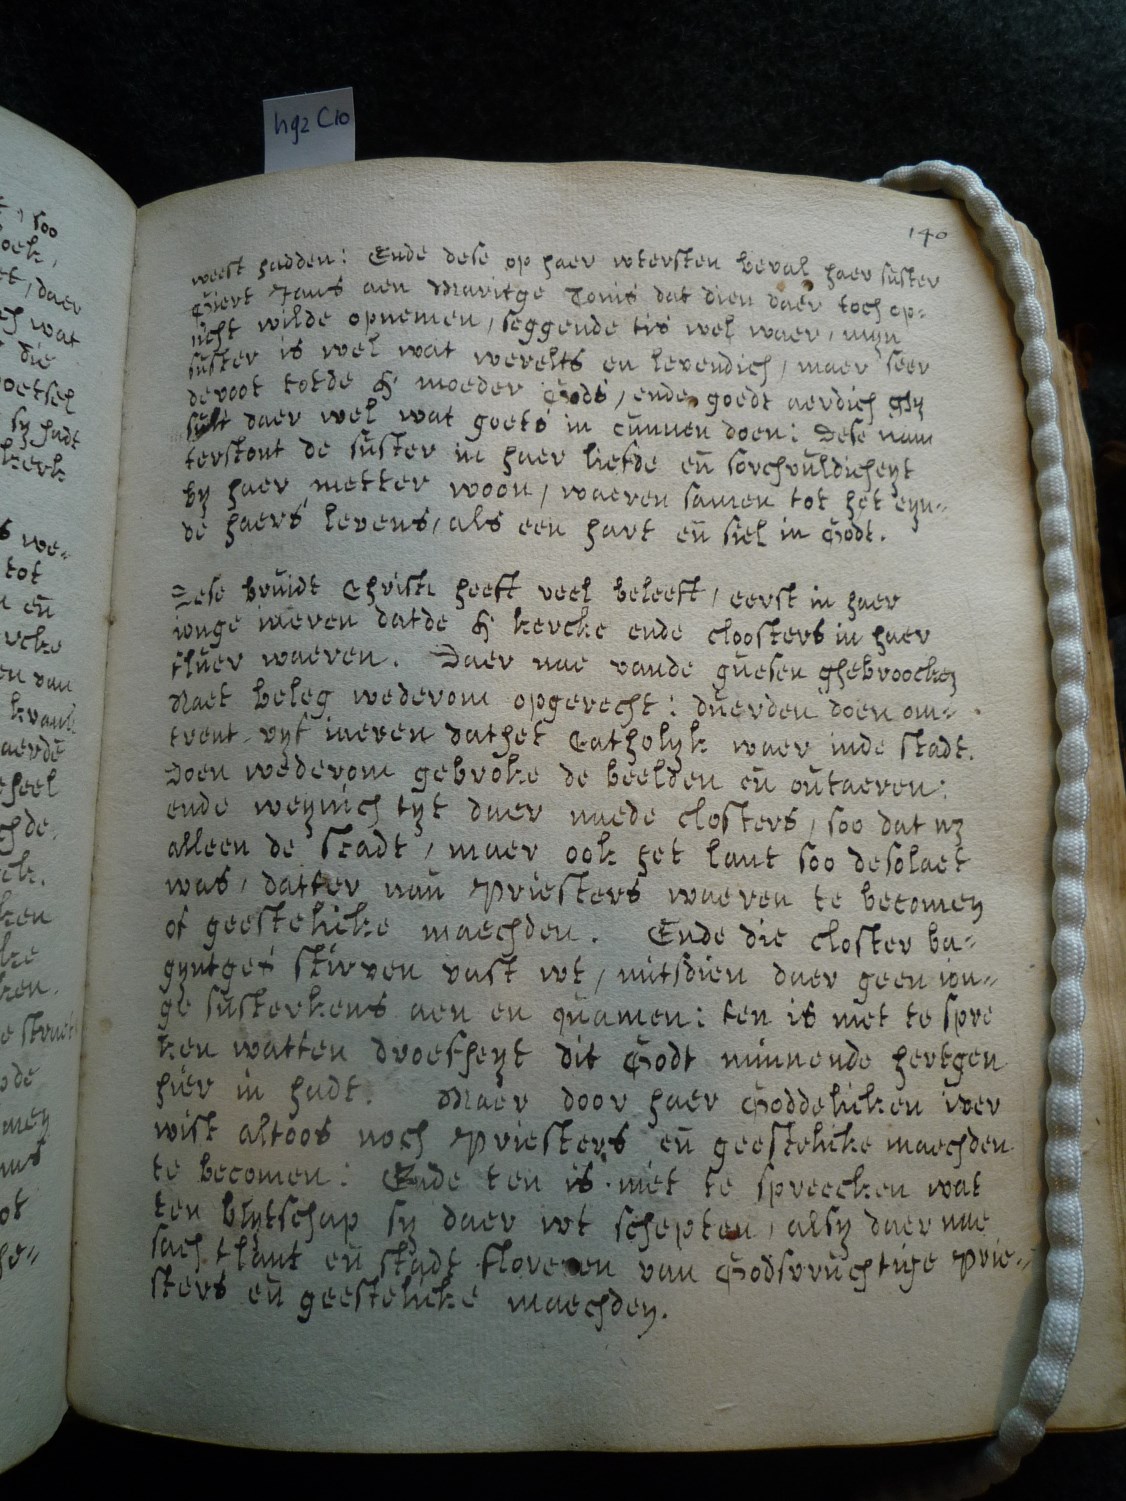 hg2 C10
140
weest hadden: Ende dese op haer wtersten beval haer suster
Griert Jans aen Maritge Tonis dat dien daer toch op-
sicht wilde opnemen, seggende tis wel waer, mijn
suster is wel wat werelts en levendich, maer seer
devoot totde H moeder Gods, ende goedt aerdich ghy
sult daer wel wat goets in cunnen doen: Dese nam
terstont de suster in haer liefde en̄ sorchvuldicheyt
by haer metter woon, waeren samen tot het eyn-
de haers levens, als een hart en̄ siel in Godt.
Dese bruidt Christi heeft veel beleeft, eerst in haer
ionge iaeren datde H kercke ende cloosters in haer
fluer waeren. Daer nae vande guesen ghebroocken
Naet beleg wederom opgerecht: duerden doen om-
trent vyf iaeren dathet Catholyk waer inde stadt.
Doen wederom gebroke de beelden en̄ outaeren:
ende weynich tyt daer naede closters, soo dat ny
alleen de stadt, maer ook het lant soo desolaet
was, datter nau Priesters waeren te becomen
of geestelicke maechden. Ende die closter ba-
gyntges stirven vast wt, mitsdien daer geen ion-
ge susterkens aen en quamen: ten is niet te spre
ken watten droefheyt dit Godt minnende hertgen
hier in hadt. Maer door haer Goddelicken iver
wist altoos noch Priesters en̄ geestelicke maechden
te becomen: Ende ten is niet te spreecken wat
ten blytschap sy daer wt schepten, alsy daer nae
sach tlant en̄ stadt floreren van Godsvruchtige Prie-
sters en̄ geestelicke maechden.